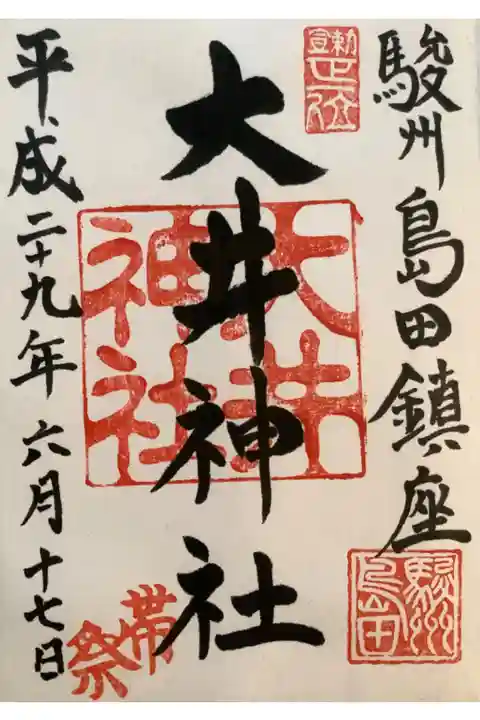 駿州島田鎮座
駿州島田
大井神社
大井神社
帯祭
平成二十九年六月十七日